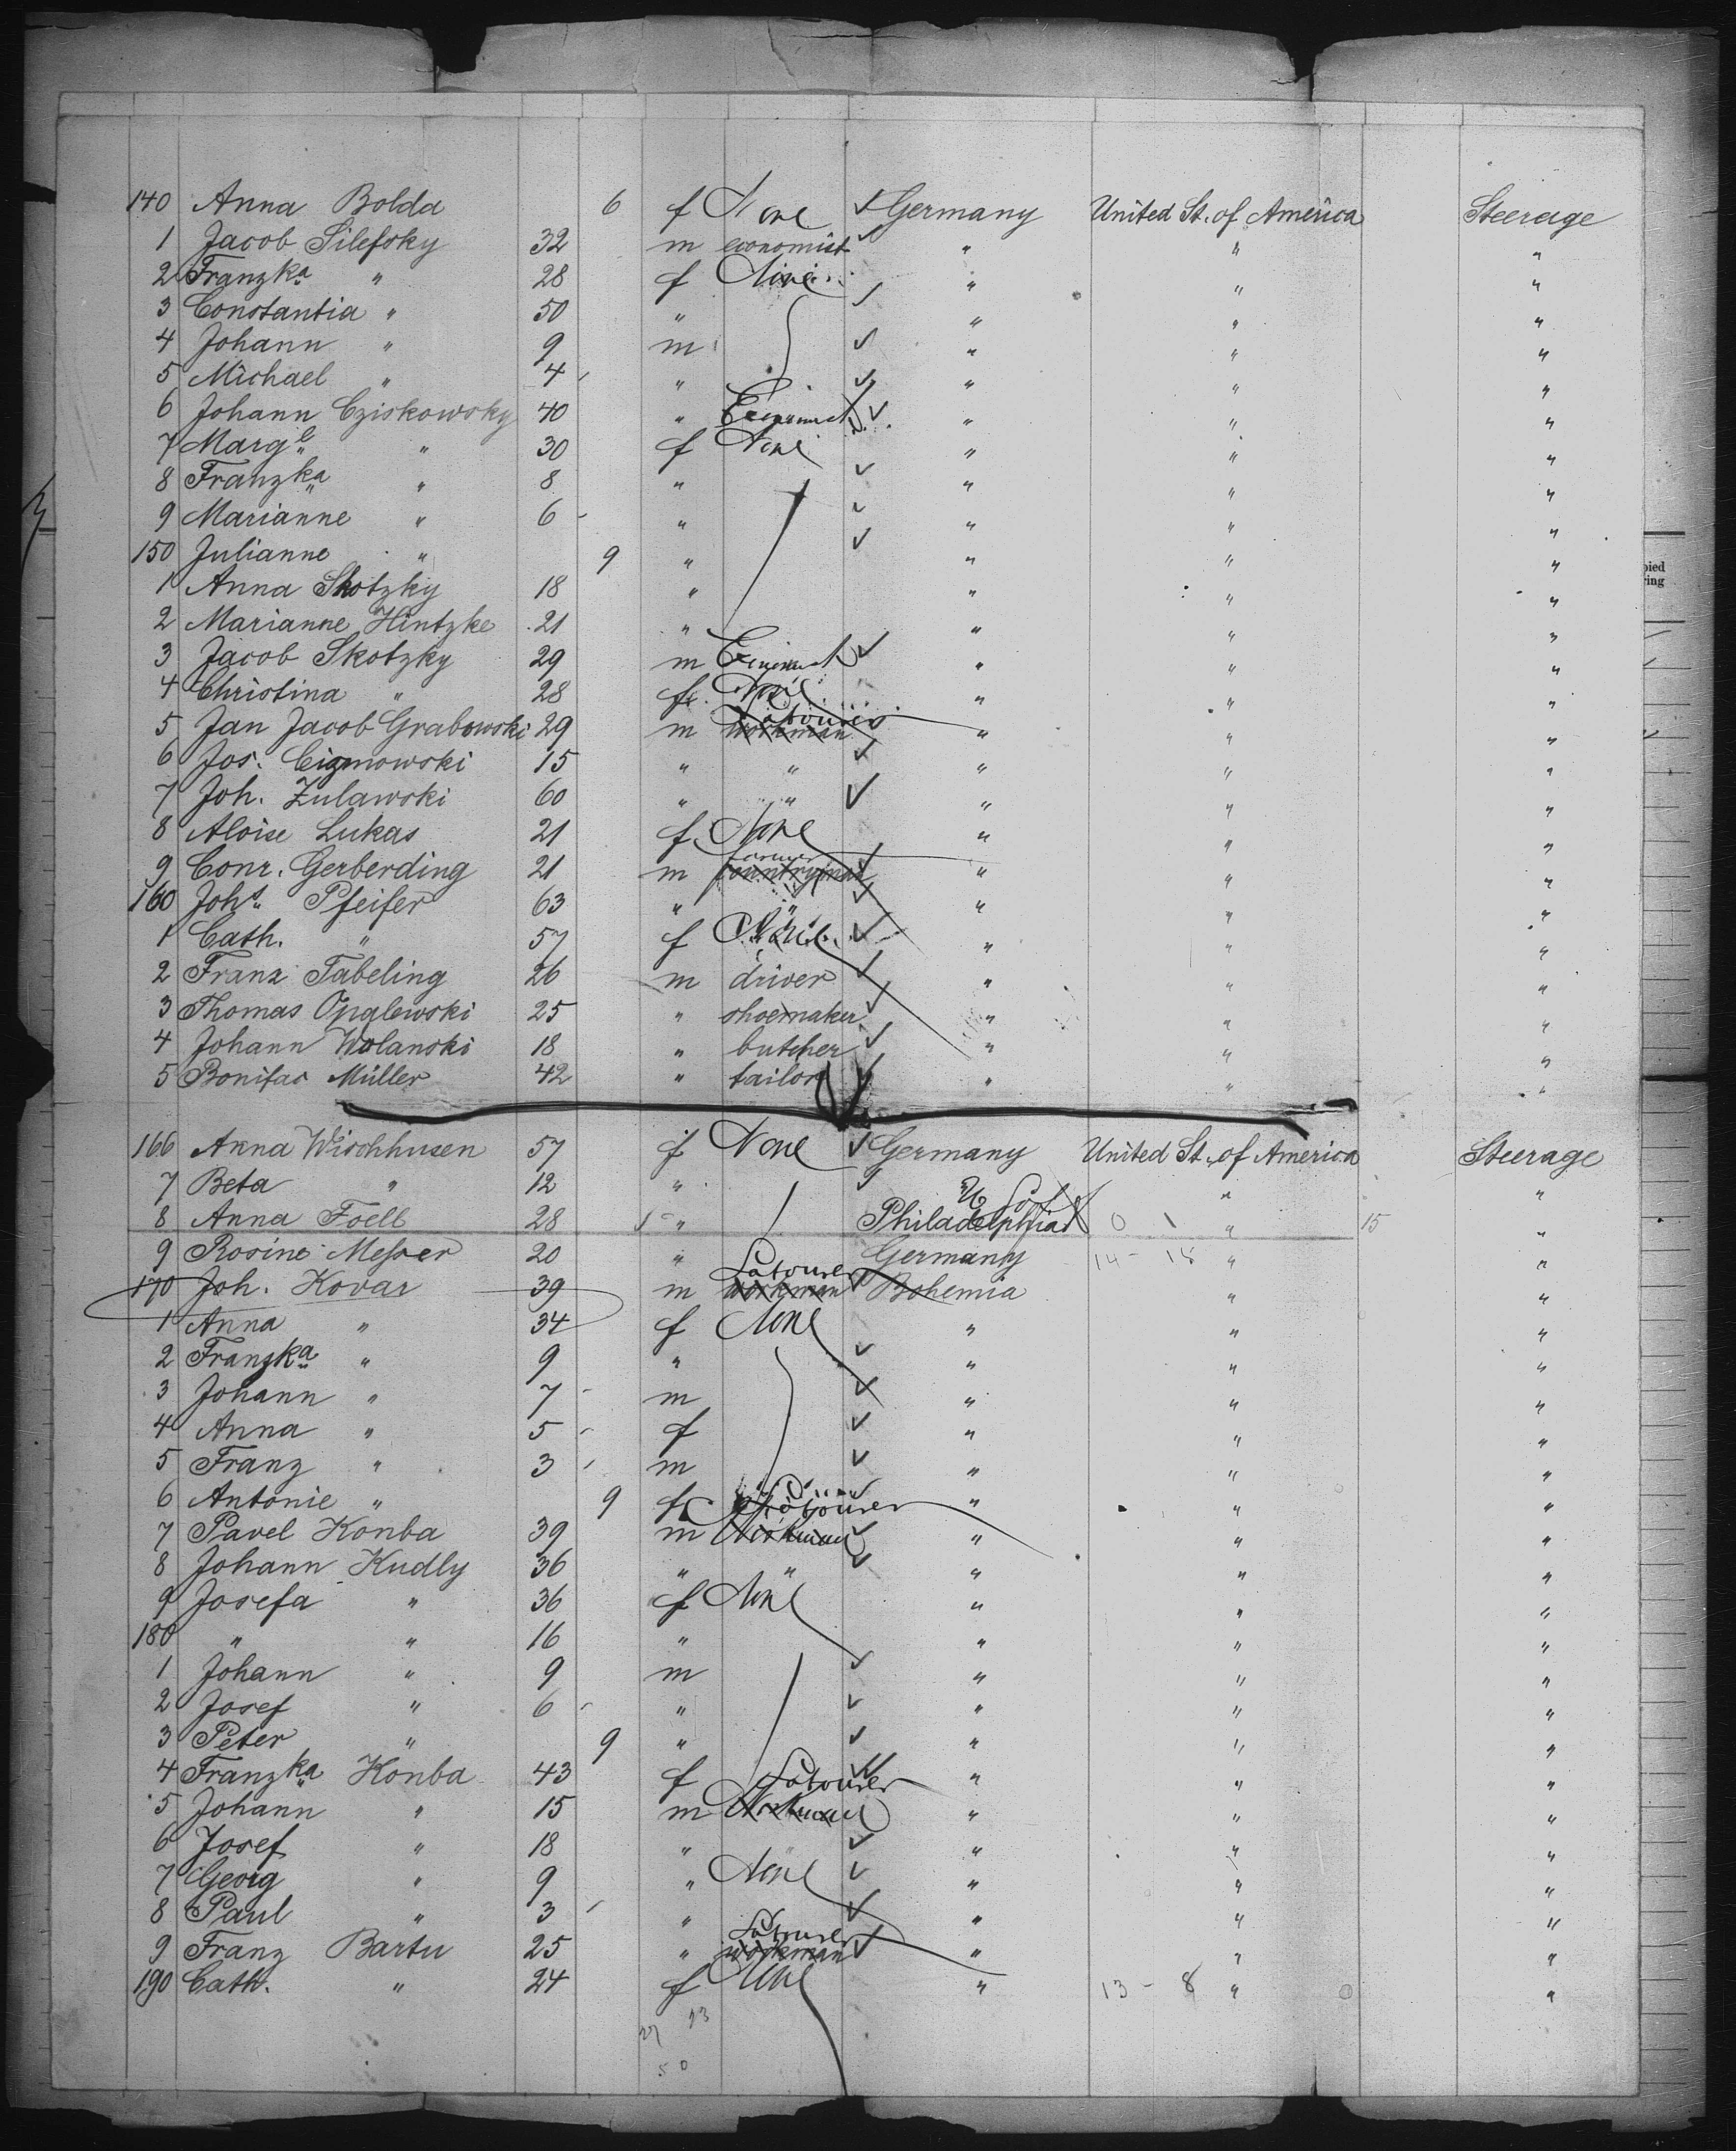 140 Anna Bolda 6 f None Germany United St. of America Steerage
1 Jacob Silefsky 32 m economist " " "
2 Franzka " 28 f None " " "
3 Constantia " 50 " " " "
4 Johann " 9 m " " "
5 Michael " 4 " " " "
6 Johann Cziskowsky 40 " Economist " " "
7 Marg. " 30 f None " " "
8 Franzka " 8 " " " "
9 Marianne " 6 " " " "
150 Julianne " 9 " " " "
1 Anna Skotzky 18 " " " "
2 Marianne Hintzke 21 " " " "
3 Jacob Skotzky 29 m Economist " " "
4 Christina " 28 f None " " "
5 Jan Jacob Grabowski 29 m workman Labourer " " "
6 Jos. Cigmowski 15 " " " " "
7 Joh. Zulawski 60 " " " " "
8 Aloise Lukas 21 f None " " "
9 Conr. Gerberding 21 m countryman farmer " " "
160 Johs. Pfeifer 63 " " " " "
1 Cath. " 57 f None " " "
2 Franz Tabeling 26 m driver " " "
3 Thomas Opalewski 25 " shoemaker " " "
4 Johann Wolanski 18 " butcher " " "
5 Bonifac Müller 42 " tailor " " "
166 Anna Wischhusen 57 f None Germany United St. of America Steerage
7 Beta " 12 " " "
8 Anna Foell 28 " Philadelphia 0 1 " 15 "
9 Rosine Messer 20 " Germany 14 - 15 " "
170 Joh. Kovar 39 m workman Labourer Bohemia " "
1 Anna " 34 f None " " "
2 Franzka " 9 " " " "
3 Johann " 7 m " " "
4 Anna " 5 f " " "
5 Franz " 3 m " " "
6 Antonie " 9 f " " "
7 Pavel Konba 39 m Workman Labourer " " "
8 Johann Kudly 36 " " " " "
9 Josefa " 36 f None " " "
180 " " 16 " " " "
1 Johann " 9 m " " "
2 Josef " 6 " " " "
3 Peter " 9 " " " "
4 Franzka Konba 43 f " " "
5 Johann " 15 m Workman Labourer " " "
6 Josef " 18 " " " " "
7 Georg " 9 " None " " "
8 Paul " 3 " " " "
9 Franz Bartu 25 " workman Labourer " " "
190 Cath. " 24 f None " 13 - 8 " "
27 23
50